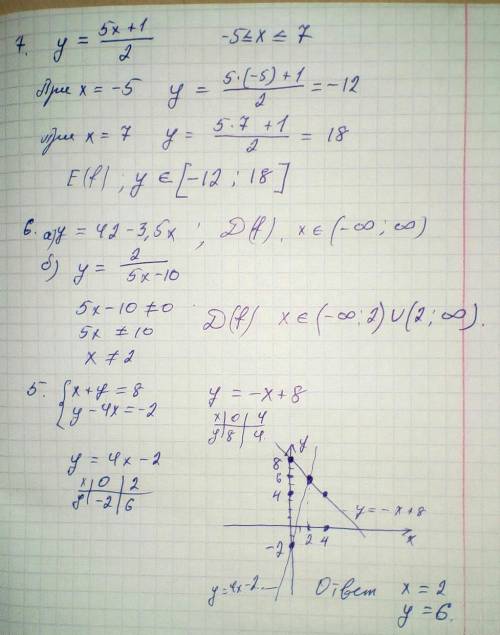 7. y = (5x+1)/2    -5≤x≤7
При x = -5   y = (5·(-5)+1)/2 = -12
При x = 7   y = (5·7+1)/2 = 18
E(f); y ∈ [-12; 18]
6. а) y = 42-3,5x; D(f). x∈(-∞;∞)
б) y = 2/(5x-10)
5x-10≠0
5x ≠10
x ≠ 2
D(f) x∈(-∞;2)∪(2;∞).
5. { x+y=8
y-4x=-2
y = -x+8
x 0 4
y 8 4
y = 4x-2
x 0 2
y -2 6
y
8
6
4
2 4
x
-2
y=-x+8
y=4x-2
Ответ x = 2
y = 6.